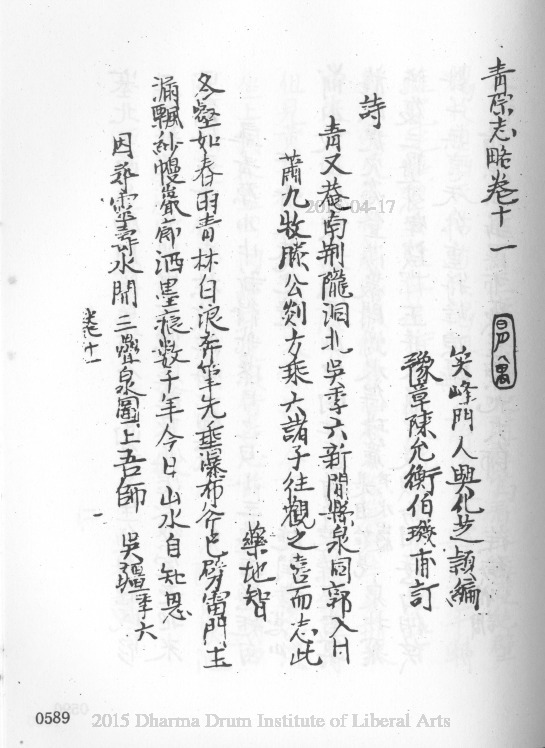 青原志略卷十一
笑峰門人興化芝頴編
豫章陳允衡伯璣甫訂
詩
青又菴南荆隴洞北吳季六新開縣泉同郭入圖
蕭九牧滕公剡方乘六諸子往觀之喜而志此
藥地智
冬壑如春雨青林白浪奔筆先垂瀑布谷已劈雷門玉
漏飄紗幔巖廊洒墨痕數千年今日山水自知恩
因尋靈壽水開三疊泉圖上吾師 吳 季六
卷十一
一
2015-04-17
0589
2015 Dharma Drum Institute of Liberal Arts